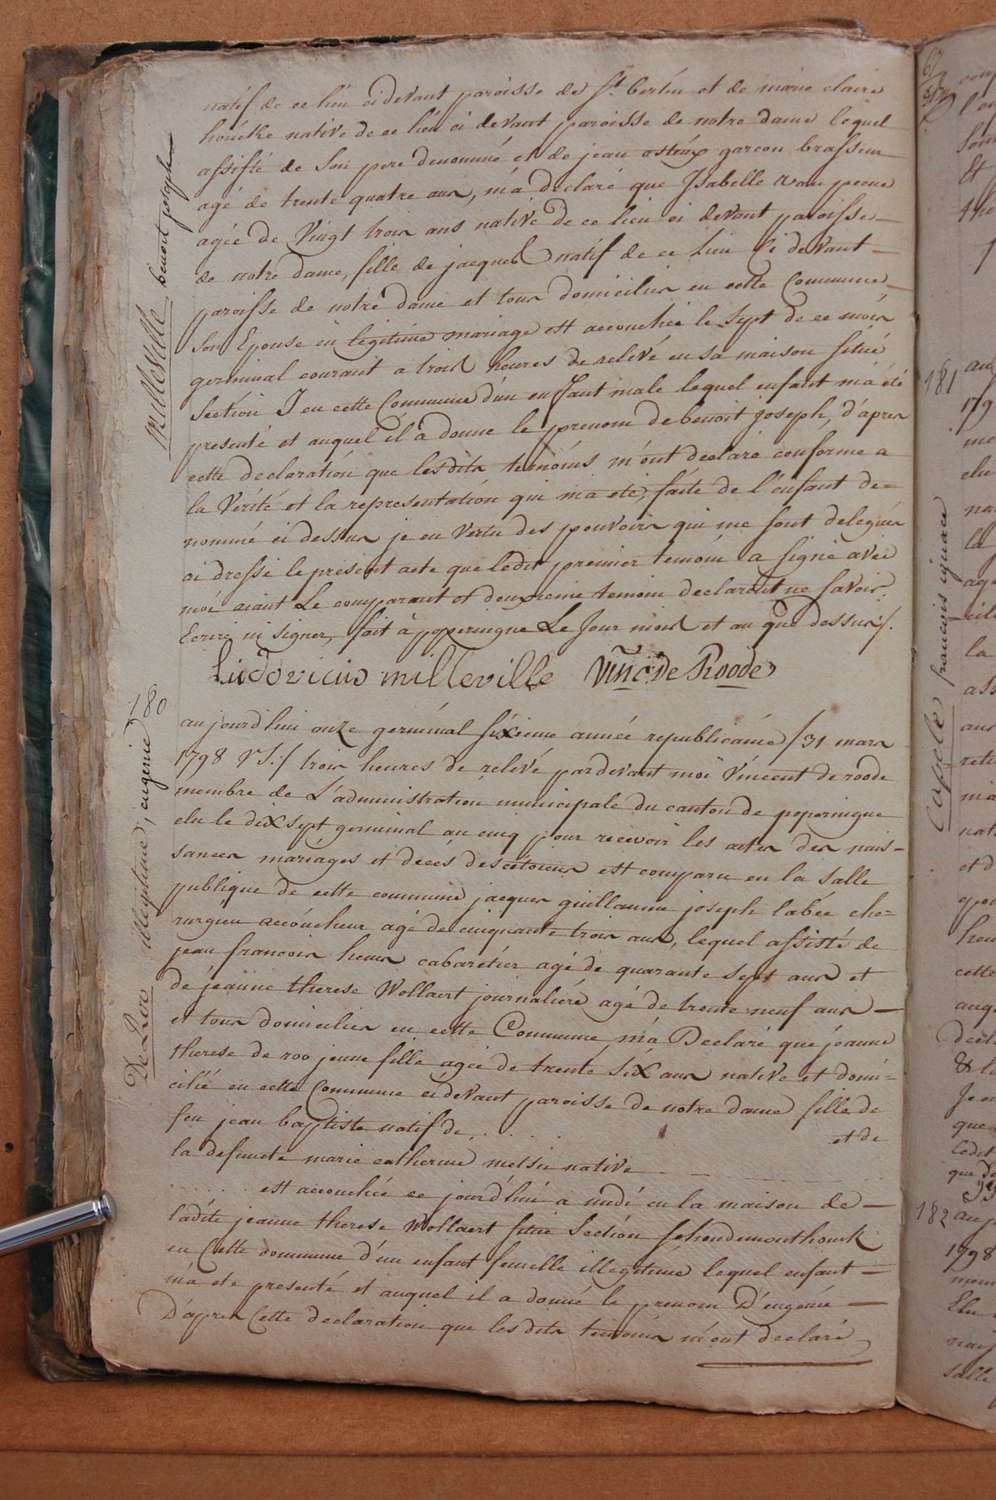 natif de ce lieu ci devant paroisse de St. bertin et de marie claire
houcke native de ce lieu ci devant paroisse de notre dame lequel
assisté de son pere denommé et de jean garcon brasseur
agé de trente quatre ans, m'a declaré que Isabelle
agée de Vingt trois ans native de ce lieu ci devant paroisse
de notre dame, fille de jacques natif de ce Lieu Ci devant
paroisse de notre dame et tous domiciliés en cette Commune
son Epouse en legitime mariage est accouchée le sept de ce mois
germinal courant a trois heures de relivé en sa maison situé
Section I en cette Commune d'un enfant male lequel enfant m'a été
presenté et auquel il a donné le prenom de benoit joseph, d'apres
cette declaration que lesdits temoins m'ont declaré conforme a
la Verité et la representation qui m'a eté faite de l'enfant de=
nommé ci dessus je en Vertu des pouvoirs qui me sont delegués
ai dressé le present acte que ledit premier temoin a signé avec
moi aiant Le comparant et deuxieme temoin declaré ne savoir
Ecrire ni signer, fait à poperingue Le Jour mois et an que dessus /.
Ludovicus milleville Vinc: De Roode
milleville benoit joseph
180
aujourd'hui onze germinal sixieme année republicaine / 31 mars
1798 V S: / trois heures de relivé pardevant moi Vincent de roode
membre de L'administration municipale du canton de poperingue
elu le dix sept germinal an cinq pour recevoir les actes des nais-
sances mariages et decés des citoiens est comparu en la salle
publique de cette commune jacques guillaume joseph labée chi=
rurgien accoucheur agé de cinquante trois ans, lequel assisté de
jean francois cabaretier agé de quarante sept ans et
de jeanne therese Wollaert journaliere agé de trente neuf ans —
et tous domiciliés en cette Commune m'a Declaré que jeanne
therese de roo jeune fille agée de trente Six ans native et domi=
cilié en cette Commune ci devant paroisse de notre dame fille de
feu jean baptiste natif de . . . . et de
la defuncte marie catherine metsu native
. . . . . . est accouchée ce jourd'hui a midi en la maison de —
ladite jeanne therese Wollaert située Section
en Cette Commune d'un enfant femelle illegitime lequel enfant —
m'a eté presenté et auquel il a donné le prenom D'eugenie —
D'apres Cette declaration que lesdits temoins m'ont declaré
De Roo illegitime, eugenie
181
Cappele francois ignace
182
1798